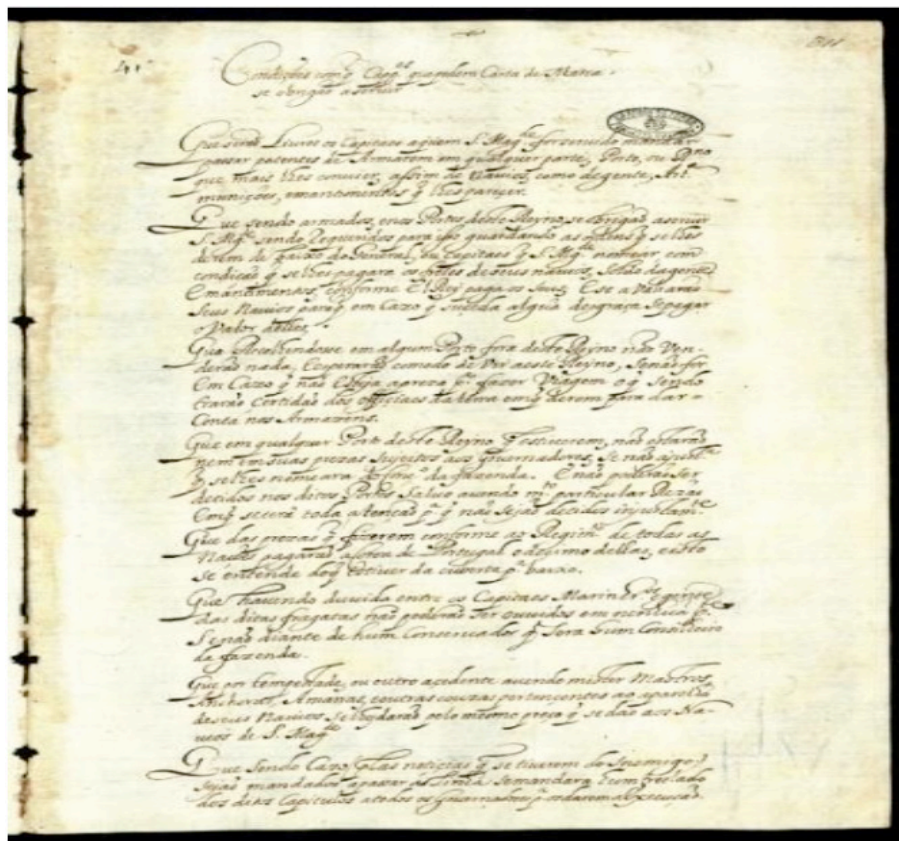 Condições com q̃ Cap.es q̃ pedem Carta de Marca
se obrigão a seruir
Que serão Liures os Capitaes a quem S. Mag.de for seruido mandar
passar patentes de Armarem em qualquer parte, Porto, ou
que mais lhes conuier, assim de Nauios, como de gente, Art.
munições, emantimentos q̃ lhes pareçer.
Que sendo armados, enos Portos deste Reyno, se obrigão aseruir
S. Mg.de sendo Requeridos para isso guardando as ordens q̃ se lhes
derem de baixo do General, ou Capitaes q̃ S. Mg.de nomear, com
condição q̃ se lhes pagara os fretes de seus nauios, soldo dagente
Emantimentos, conforme El Rey paga os seus, E se aValiarão
Seus Nauios paraq̃ em Cazo q̃ suceda algũa desgraça se pagar
o Valor delles.
Que Recolhendosse em algum Porto fora deste Reyno não Ven-
derão nada, Eesperarão comodo de Vir aeste Reyno, Senão for
Em Cazo q̃ não Esteja apreza p.a fazer Viagem oq̃ sendo
trarão Certidão dos offiçiaes da terra emq̃ derem para dar
Conta nos Armazens.
Que em qualquer Porto deste Reyno q̃ estiuerem, não estarão
nem em suas prezas Sujeitos aos Gouernadores, Se não
q̃ selhes nomeara da fazenda. E não poderão ser
detidos nos ditos Portos Saluo auendo m.to particular Rezão
Emq̃ se terá toda atenção p.a q̃ não sejão detidos injustam.te
Que das prezas q̃ fizerem conforme ao Regim.to de todas as
Naçoẽs pagarão de Portugal odizimo dellas, eisto
se entende doq̃ estiuer da cuberta p.a baixo.
Que hauendo duuida entre os Capitaes Marinhr.os e gente
das ditas fragatas não poderão ser ouuidos em nenhũa p.te
Senão diante de hum Conseruador q̃ Sera hum Conselheiro
da fazenda.
Que por tempestade, ou outro acidente auendo mister Mastros,
Anchoras, Amarras, eoutras couzas pertencentes ao aparelho
deseus Nauios selhe darão pelo mesmo preço q̃ se dão aos Na-
uios de S. Mag.de
Que Sendo Cazo, pelas noticias q̃ se tiuerem do Inemigo,
sejão mandados semandara hum treslado
dos ditos Capitulos atodos os Gouernadores p.a Execução.